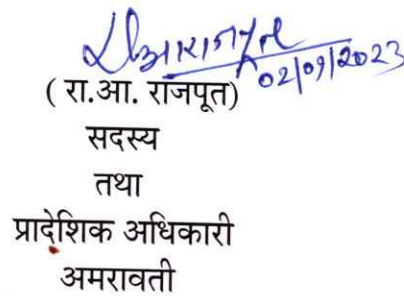 02/09/2023
( रा.आ. राजपूत)
सदस्य
तथा
प्रादेशिक अधिकारी
अमरावती